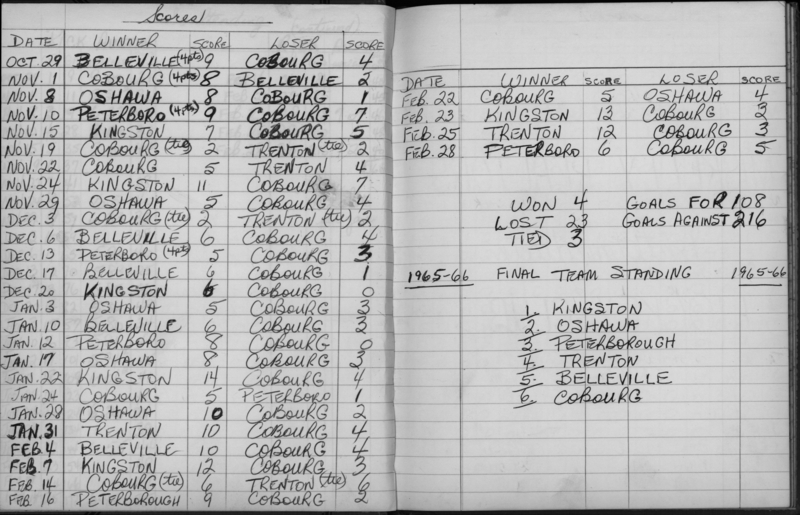 Scores
DATE WINNER SCORE LOSER SCORE
OCT. 29 BELLEVILLE (4pts) 9 COBOURG 4
NOV. 1 COBOURG (4pts) 8 BELLEVILLE 2
NOV. 8 OSHAWA 8 COBOURG 1
NOV. 10 PETERBORO (4pts) 9 COBOURG 7
NOV. 15 KINGSTON 7 COBOURG 5
NOV. 19 COBOURG (tie) 2 TRENTON (tie) 2
NOV. 22 COBOURG 5 TRENTON 4
NOV. 24 KINGSTON 11 COBOURG 7
NOV. 29 OSHAWA 5 COBOURG 4
DEC. 3 COBOURG (tie) 2 TRENTON (tie) 2
DEC. 6 BELLEVILLE 6 COBOURG 4
DEC. 13 PETERBORO (4pts) 5 COBOURG 3
DEC. 17 BELLEVILLE 6 COBOURG 1
DEC. 20 KINGSTON 6 COBOURG 0
JAN. 3 OSHAWA 5 COBOURG 3
JAN. 10 BELLEVILLE 6 COBOURG 3
JAN. 12 PETERBORO 8 COBOURG 0
JAN. 17 OSHAWA 8 COBOURG 3
JAN. 22 KINGSTON 14 COBOURG 4
JAN. 24 COBOURG 5 PETERBORO 1
JAN. 28 OSHAWA 10 COBOURG 2
JAN. 31 TRENTON 10 COBOURG 4
FEB. 4 BELLEVILLE 10 COBOURG 4
FEB. 7 KINGSTON 12 COBOURG 3
FEB. 14 COBOURG (tie) 6 TRENTON (tie) 6
FEB. 16 PETERBOROUGH 9 COBOURG 2
DATE WINNER SCORE LOSER SCORE
FEB. 22 COBOURG 5 OSHAWA 4
FEB. 23 KINGSTON 13 COBOURG 2
FEB. 25 TRENTON 12 COBOURG 3
FEB. 28 PETERBORO 6 COBOURG 5
WON 4 GOALS FOR 108
LOST 23 GOALS AGAINST 216
TIED 3
1965-66 FINAL TEAM STANDING 1965-66
1. KINGSTON
2. OSHAWA
3. PETERBOROUGH
4. TRENTON
5. BELLEVILLE
6. COBOURG